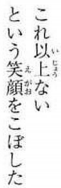 これ以上ない
という笑顔をこぼした